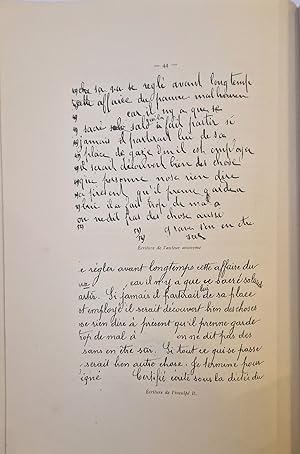 — 44 —
sa va se reglé avant longtemp
cette affairée du pauvre malheureu
car il ny a que se
sacré salo a fait partir si
jamais il partait lui de sa
place de garde d'ou il est employer
il serait découvert bien des chose
que personne nose rien dire
a présent qu'il prenne gardea
il la fait trop de mal a
on ne dit pas des chose aussi
grave s'en en etre
sur
Écriture de l'auteur anonyme
se régler avant longtemps cette affaire du
car il n'y a que ce sacré salaud
partir. Si jamais il partirait lui de sa place
est employé il serait découvert bien des choses
ose rien dire à présent qu'il prenne garde
trop de mal à on ne dit pas des
sans en être sûr. Si tout ce qui se passe
serait bien autre chose. Je termine pour
igné Certifié écrit sous la dictée du
Écriture de l'inculpé R.